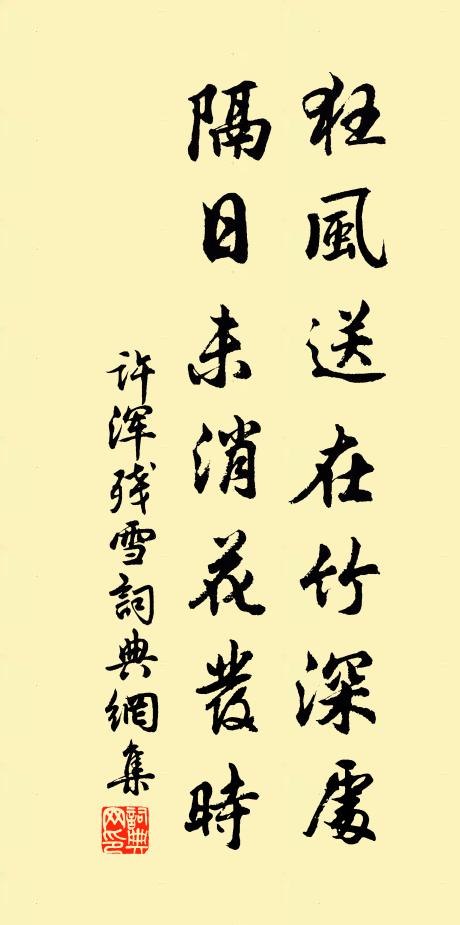 狂風送在竹深處
隔日未消花發時
许浑残雪詞典網集
詞典网印